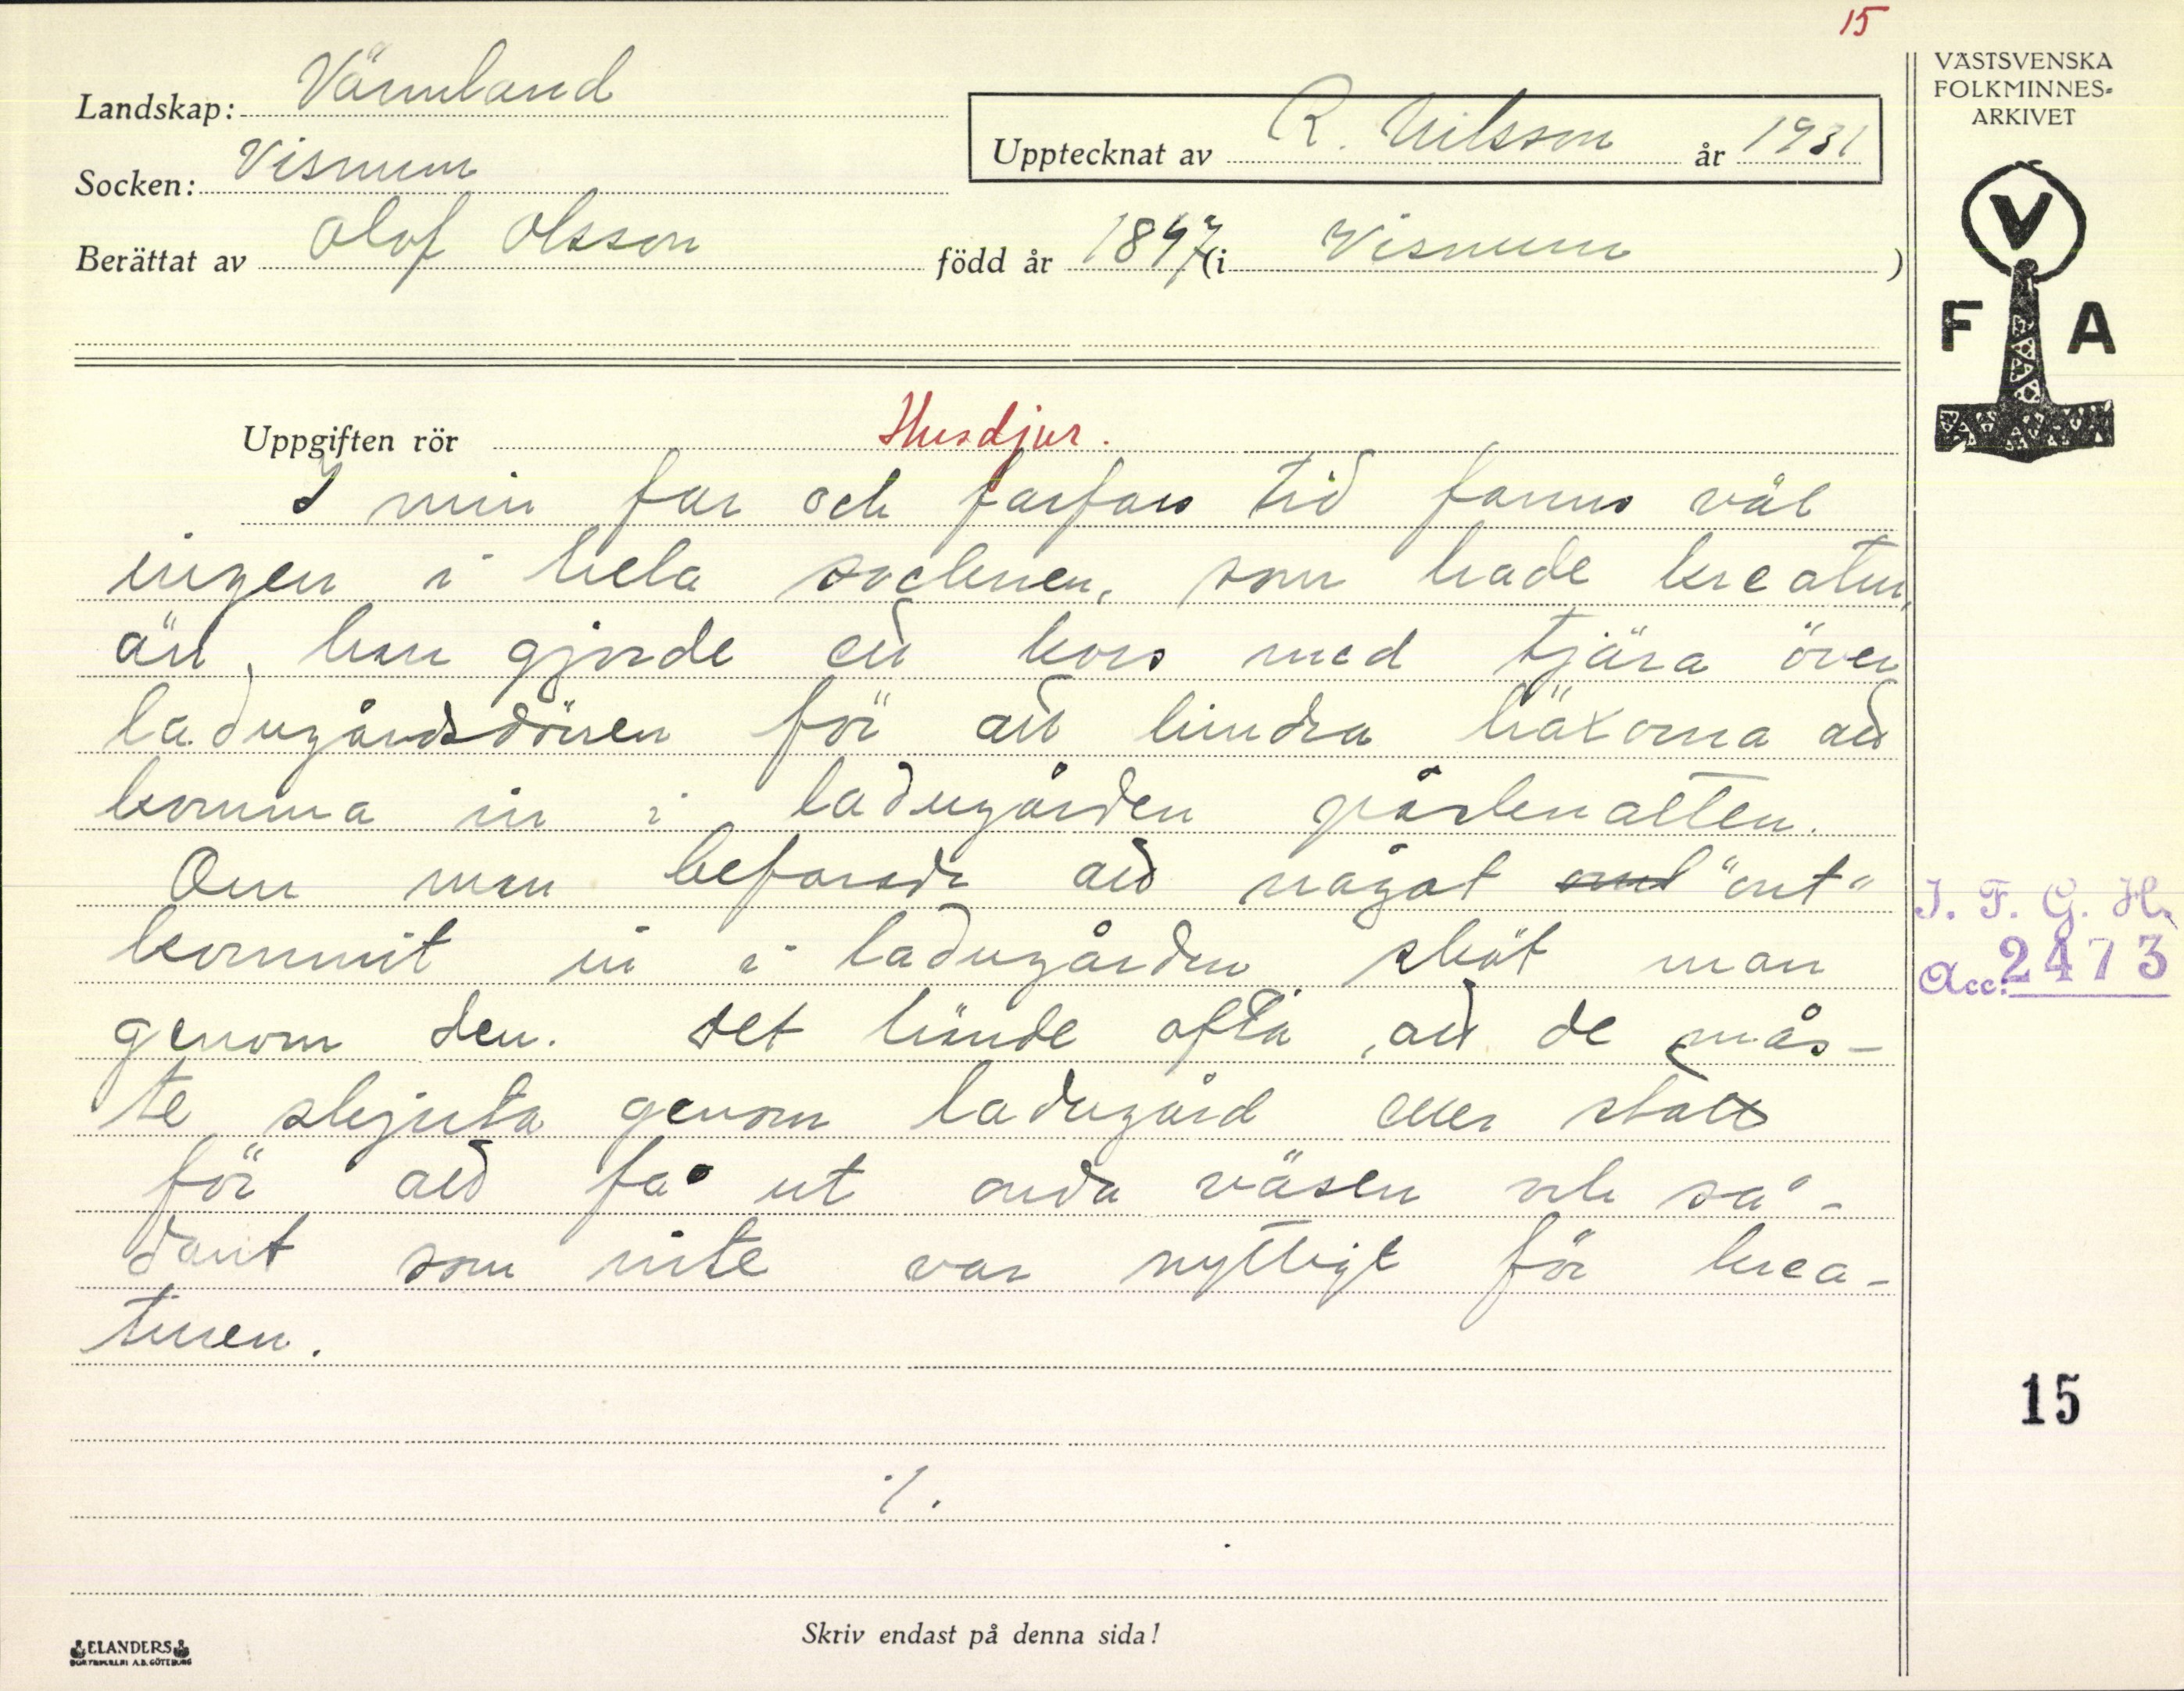 15
VÄSTSVENSKA
FOLKMINNES-
ARKIVET
Landskap: Värmland
Upptecknat av R. Nilsson år 1931
Socken: Visnum
Berättat av Olof Olsson född år 1847 (i Visnum )
V
F A
Uppgiften rör Husdjur.
I min far och farfars tid fanns väl
ingen i hela socknen, som hade kreatur,
än han gjorde ett kors med tjära över
ladugårdsdörren för att hindra häxorna att
komma in i ladugården påskenatten.
Om man befarade att något ond "ont"
kommit in i ladugården sköt man
genom den. Det hände ofta, att de mås-
te skjuta genom ladugård eller stall
för att få ut onda väsen och så-
dant som inte var nyttigt för krea-
turen.
I. F. G. H.
Acc: 2473
15
./.
Skriv endast på denna sida!
ELANDERS
BOKTRYCKERI A.B. GÖTEBORG